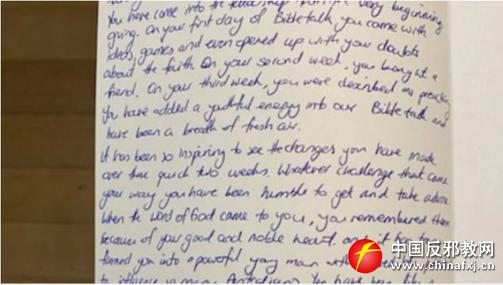 You have come into the fellowship from the very beginning
giving. On your first day of Bible talk you came with
ideas, games and even opened up with your doubts
about the faith. On your second week, you brought a
friend. On your third week, you were described as preachy
You have added a youthful energy into our Bible talk and
have been a breath of fresh air.
It has been so inspiring to see the changes you have made
over the quick two weeks. Whatever challenge that came
your way you have been humble to get and take advice
When the Word of God came to you, you remembered them
because of your good and noble heart. and it has
turned you into a powerful young man with
to influence so many You have been like
中国反邪教网
www.chinafxj.cn